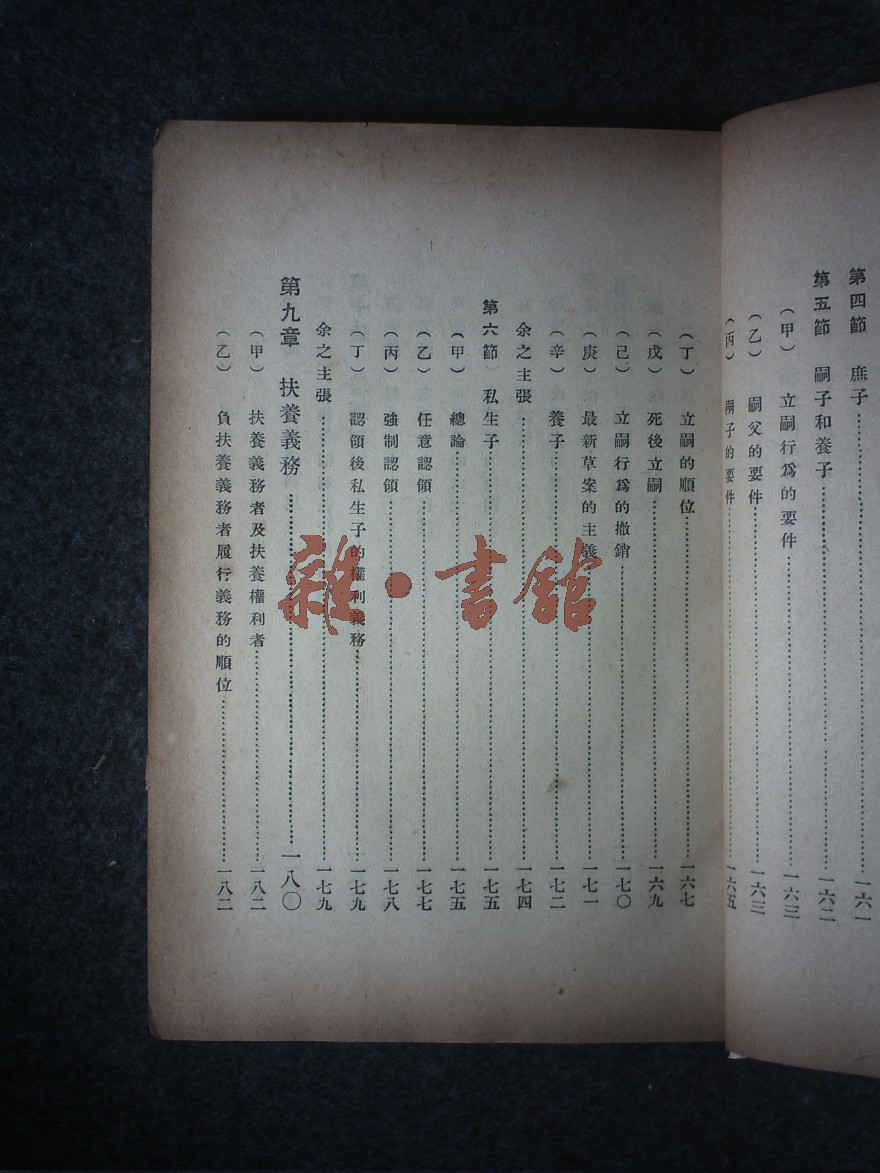 第四節 庶子……一六一
第五節 嗣子和養子……一六二
(甲) 立嗣行爲的要件……一六三
(乙) 嗣父的要件……一六三
(丙) 嗣子的要件……一六五
(丁) 立嗣的順位……一六七
(戊) 死後立嗣……一六九
(己) 立嗣行爲的撤銷……一七〇
(庚) 最新草案的主義……一七一
(辛) 養子……一七二
余之主張……一七四
第六節 私生子……一七五
(甲) 總論……一七五
(乙) 任意認領……一七七
(丙) 強制認領……一七八
(丁) 認領後私生子的權利義務……一七九
余之主張……一七九
第九章 扶養義務……一八〇
(甲) 扶養義務者及扶養權利者……一八二
(乙) 負扶養義務者履行義務的順位……一八二
雜·書館